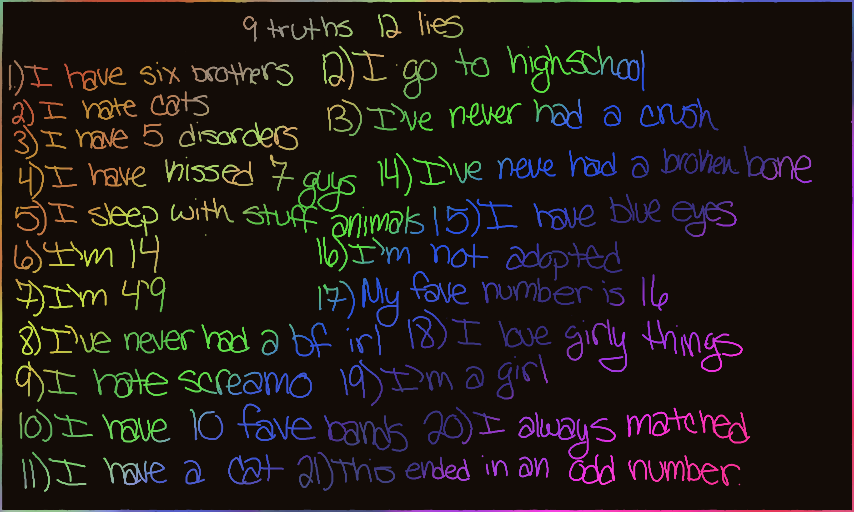 9 truths 12 lies
1) I have six brothers
2) I hate cats
3) I have 5 disorders
4) I have kissed 7 guys
5) I sleep with stuff animals
6) I'm 14
7) I'm 49
8) I've never had a bf irl
9) I hate screamo
10) I have 10 fave bands
11) I have a cat
12) I go to highschool
13) I've never had a crush
14) I've neve had a broken bone
15) I have blue eyes
16) I'm not adopted
17) My fave number is 16
18) I love girly things
19) I'm a girl
20) I always matched
21) This ended in an odd number.